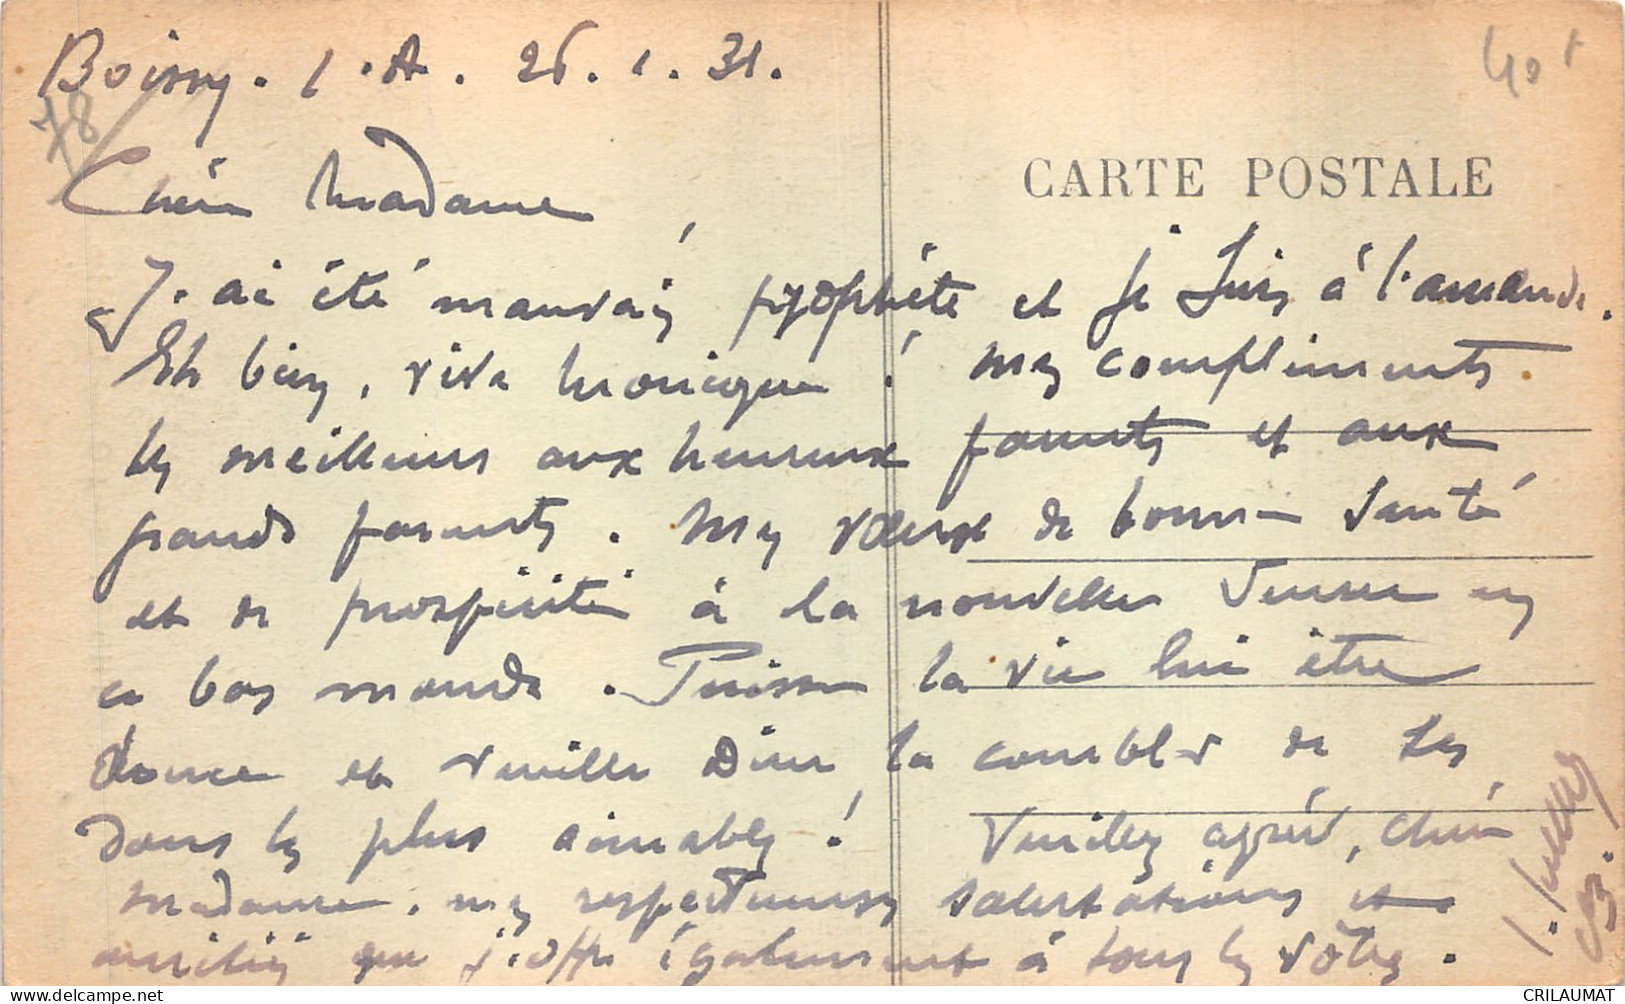 Boissy. l. A. 26. 1. 31.
78
40f
CARTE POSTALE
Chère Madame
J'ai été mauvais prophète et je suis à l'amende.
Eh bien, vive Monique ! Mes compliments
les meilleurs aux heureux parents et aux
grands parents. Mes vœux de bonne santé
et de prospérité à la nouvelle venue en
ce bas monde. Puisse la vie lui être
douce et veuille Dieu la combler de ses
dons les plus aimables ! Veuillez agréer, chère
madame, mes respectueuses salutations et
amitiés que j'offre également à tous les vôtres.
CRILAUMAT